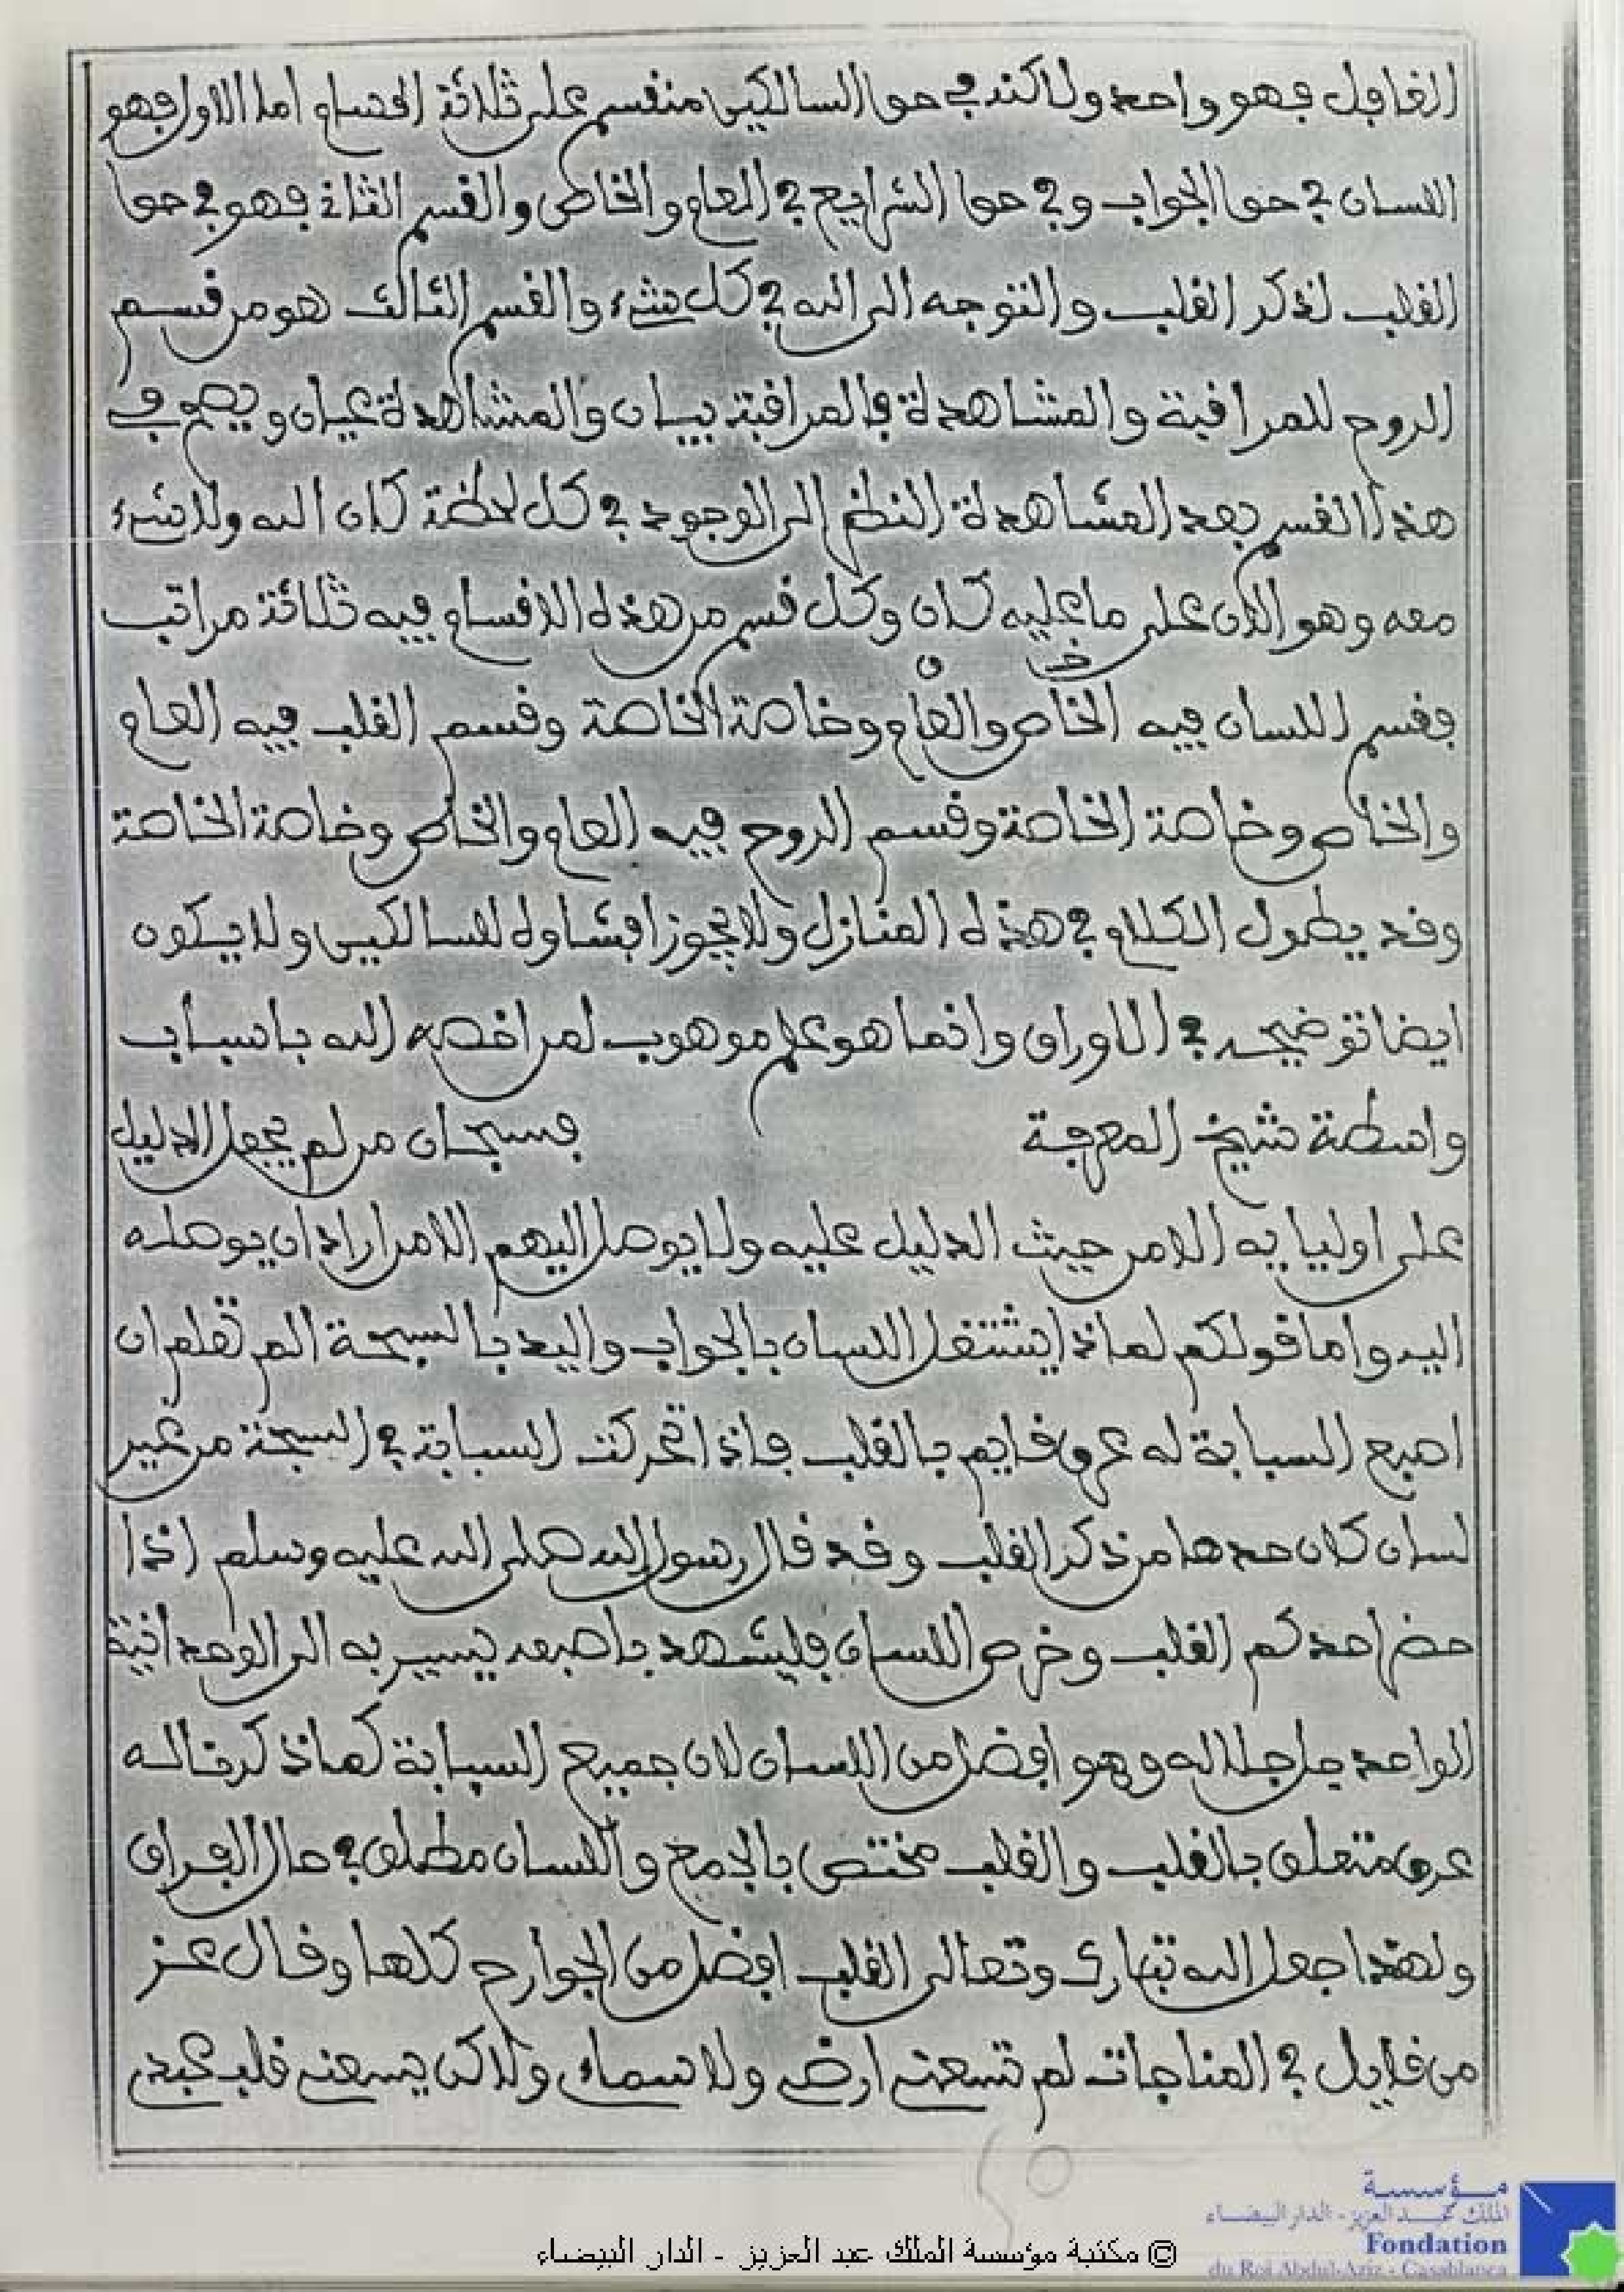 الغافل فهو واحد ولاكنه في حق السالكين منقسم على ثلاثة اقسام اما الاول فهو
اللسان في حق الجواب وفي حق الشرايع في العام والخاص والقسم الثاني فهو في حق
القلب لذكر القلب والتوجه الى الله في كل شيء والقسم الثالث هو من قسم
الروح للمراقبة والمشاهدة فالمراقبة بيان والمشاهدة عيان ويصير في
هذا القسم بعد المشاهدة النظر الى الوجود في كل لحظة كان الله ولا شيء
معه وهو الان على ما عليه كان وكل قسم من هذه الاقسام فيه ثلاثة مراتب
فقسم اللسان فيه الخاص والعام وخاصة الخاصة وقسم القلب فيه العام
والخاص وخاصة الخاصة وقسم الروح فيه العام والخاص وخاصة الخاصة
وقد يطول الكلام في هذه المنازل ولا يجوز افشاوه للسالكين ولا يكون
ايضا توضيحه في الاوراق وانما هو علم موهوب لمن اخصه الله باسباب
واسطة شيخ المعرفة فسبحان من لم يجعل الدليل
على اوليايه الا من حيث الدليل عليه ولا يوصل اليهم الا من اراد ان يوصله
اليه واما قولكم لماذا يشتغل اللسان بالجواب واليد بالسبحة الم تعلم ان
اصبع السبابة له عرق قايم بالقلب فاذا تحركت السبابة في السبحة من غير
لسان كان حدها من ذكر القلب وقد قال رسول الله صلى الله عليه وسلم اذا
حضر احدكم القلب وخرص اللسان فليشهد باصبعه يسير به الى الوحدانية
الواحد جل جلاله وهو افضل من اللسان لان جميع السبابة كما ذكرنا له
عرق متعلق بالقلب والقلب مختص بالجمع واللسان مطلق في حال الفراق
ولهذا جعل الله تبارك وتعالى القلب افضل من الجوارح كلها وقال عز
من قايل في المناجات لم تسعني ارضي ولا سماءي ولاكن يسعني قلب عبدي
مؤسسة
الملك عبد العزيز - الدار البيضاء
Fondation
du Roi Abdul-Aziz - Casablanca
© مكتبة مؤسسة الملك عبد العزيز - الدار البيضاء